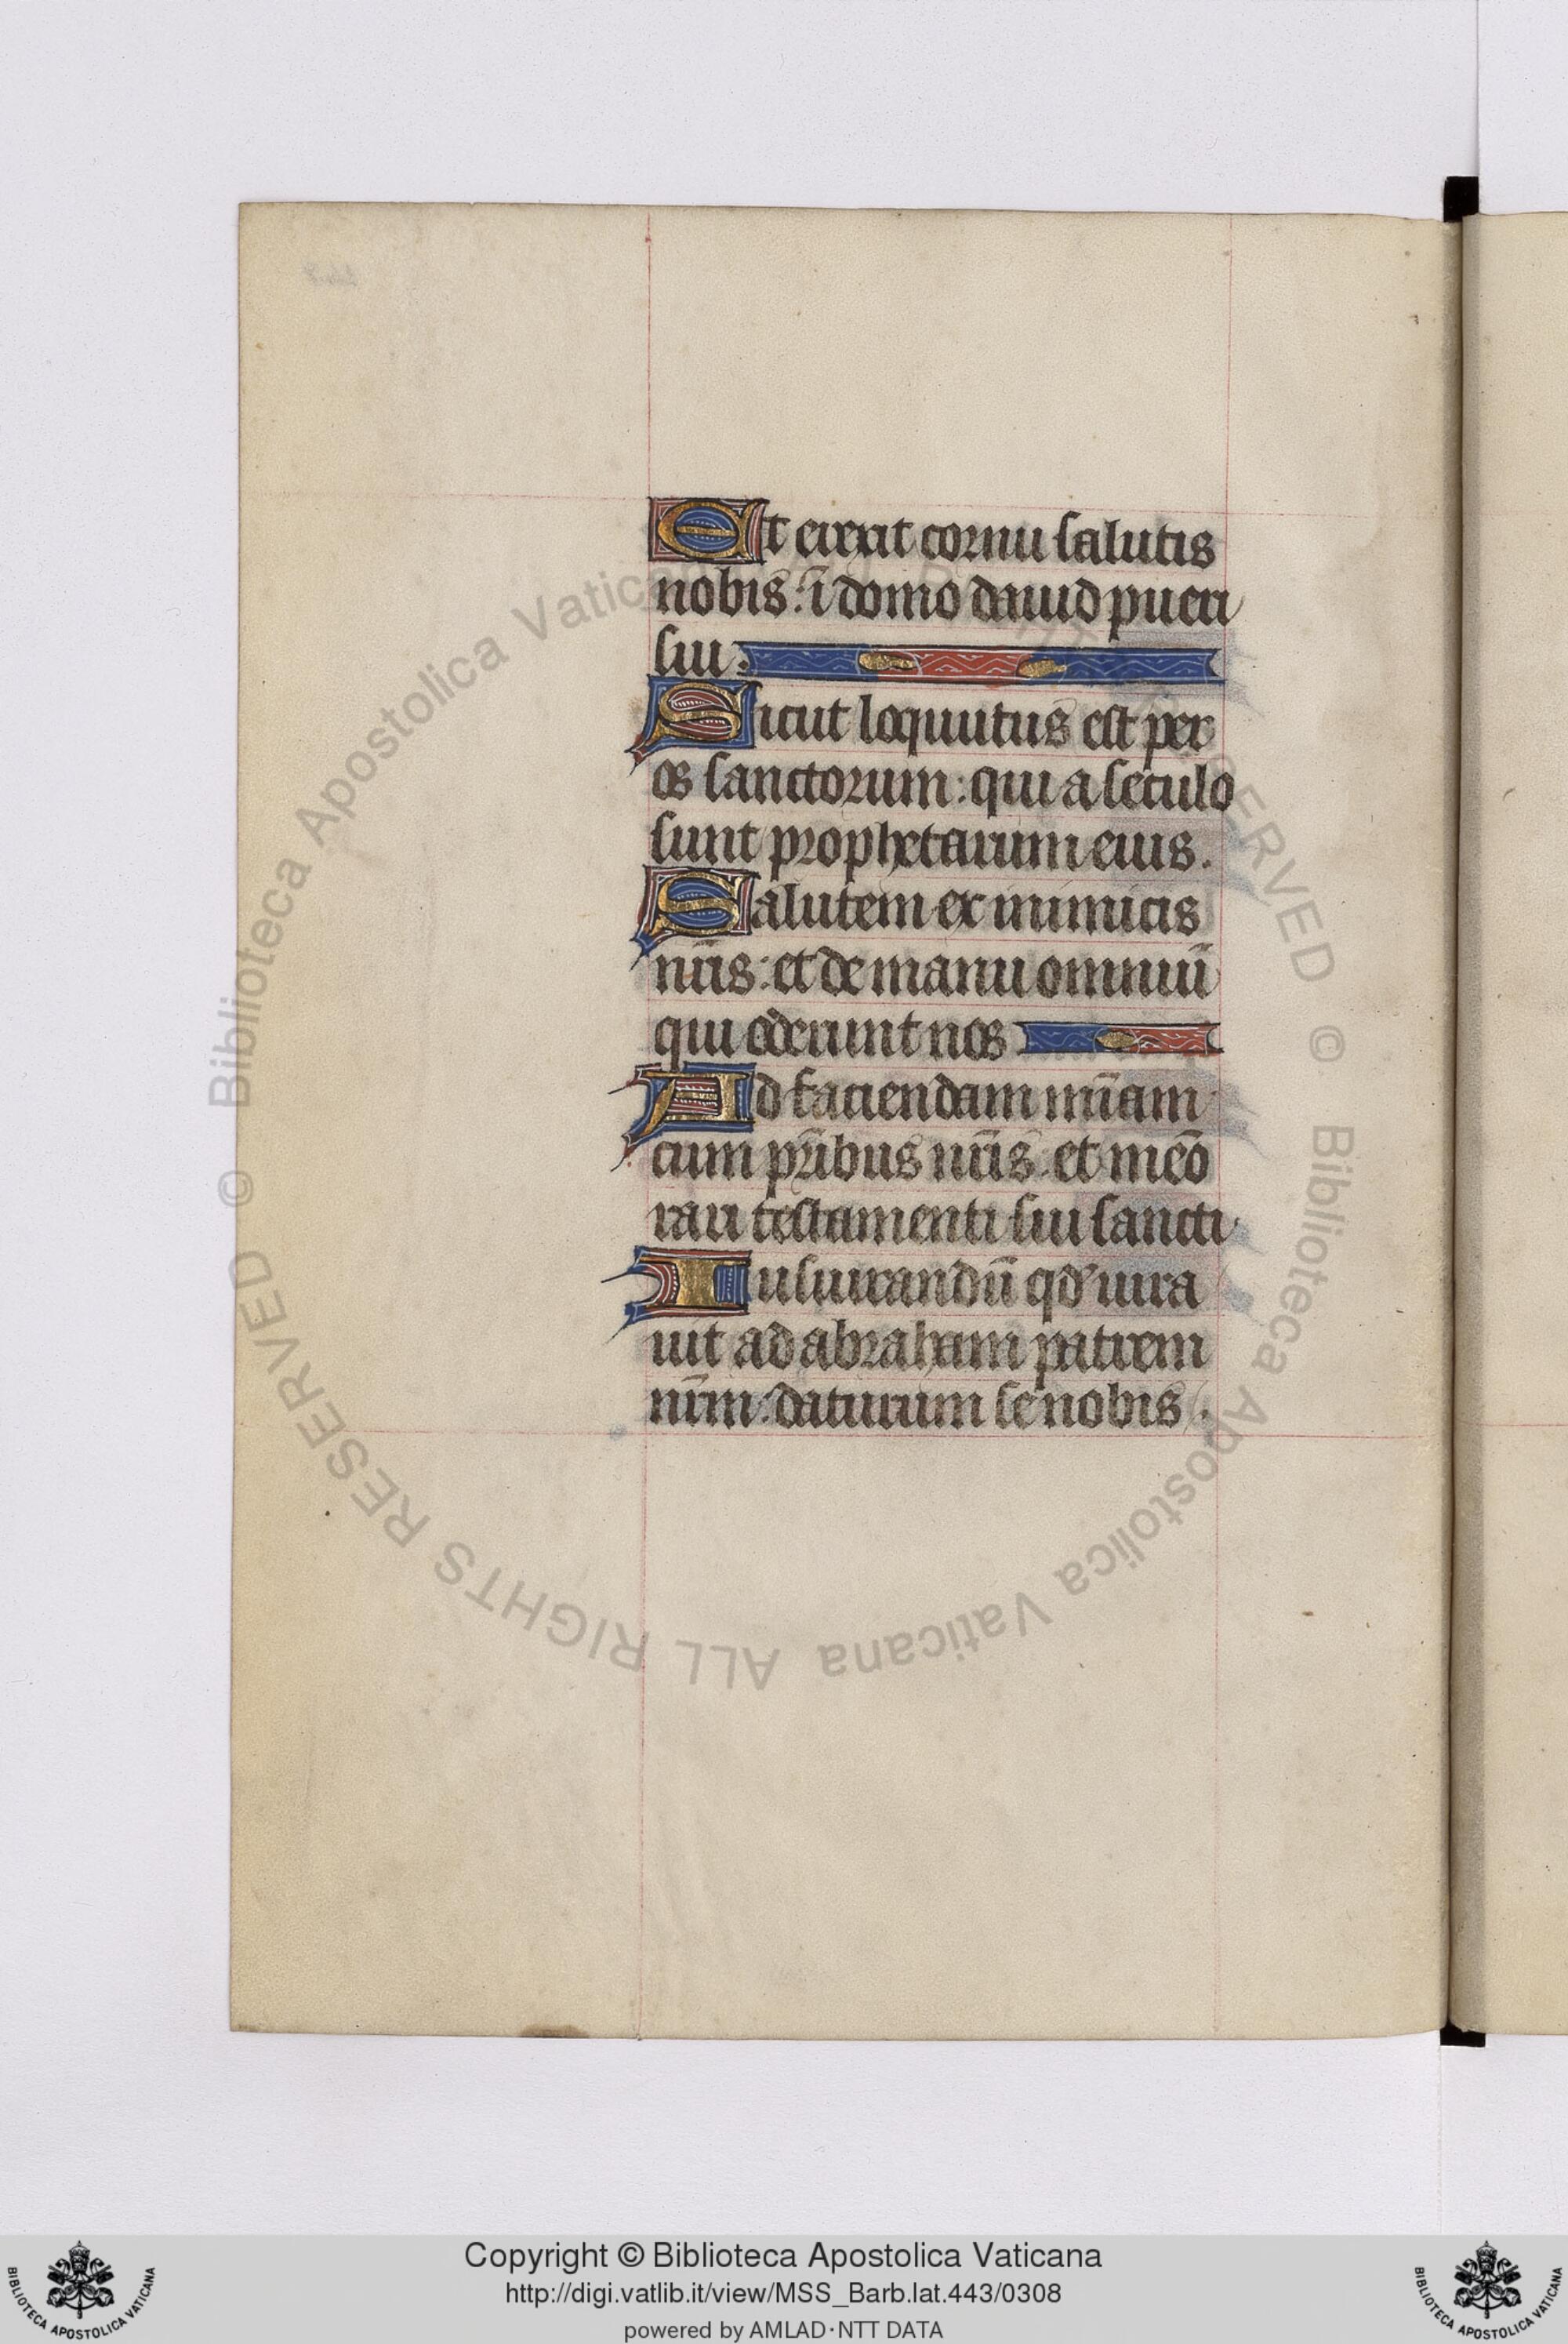 Et erexit cornu salutis
nobis: ī domo dauid pueri
sui.
Sicut loquutus est per
os sanctorum: qui a seculo
sunt prophetarum eius.
Salutem ex inimicis
nr̄is: et de manu omniū
qui oderunt nos
Ad faciendam mīam
cum pr̄ibus nr̄is: et mēo
rari testamenti sui sancti.
Iusiurandū qd' iura
uit ad abraham patrem
nr̄m: daturum se nobis.
© Biblioteca Apostolica Vaticana ALL RIGHTS RESERVED © Biblioteca Apostolica Vaticana ALL RIGHTS RESERVED
Copyright © Biblioteca Apostolica Vaticana
http://digi.vatlib.it/view/MSS_Barb.lat.443/0308
powered by AMLAD·NTT DATA
BIBLIOTECA APOSTOLICA VATICANA
BIBLIOTECA APOSTOLICA VATICANA